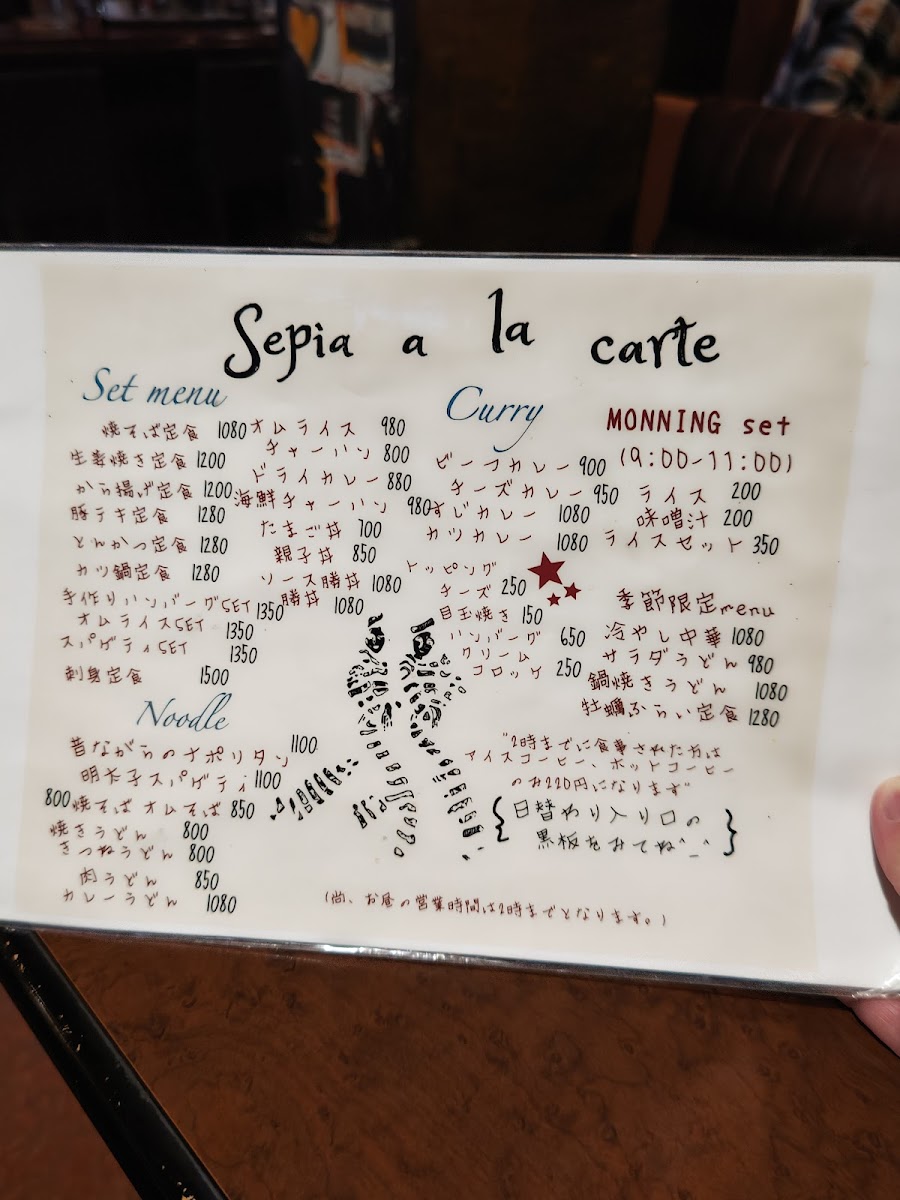 Sepia a la carte
Set menu
焼そば定食 1080
生姜焼き定食 1200
から揚げ定食 1200
豚テキ定食 1280
とんかつ定食 1280
カツ鍋定食 1280
手作りハンバーグSET 1350
オムライスSET 1350
スパゲティSET 1350
刺身定食 1500
オムライス 980
チャーハン 800
ドライカレー 880
海鮮チャーハン 980
たまご丼 700
親子丼 850
ソース勝丼 1080
勝丼 1080
Noodle
昔ながらのナポリタン 1100
明太子スパゲティ 1100
800 焼そば オムそば 850
焼きうどん 800
きつねうどん 800
肉うどん 850
カレーうどん 1080
Curry
ビーフカレー 900
チーズカレー 950
すじカレー 1080
カツカレー 1080
トッピング
チーズ 250
目玉焼き 150
ハンバーグ 650
クリーム
コロッケ 250
MONNING set
(9:00-11:00)
ライス 200
味噌汁 200
ライスセット 350
季節限定menu
冷やし中華 1080
サラダうどん 980
鍋焼きうどん 1080
牡蠣ふらい定食 1280
"2時までに食事された方は
アイスコーヒー、ホットコーヒー
のお220円になります"
{日替わり入り口の
黒板をみてね^_^}
(尚、お昼の営業時間は2時までとなります。)